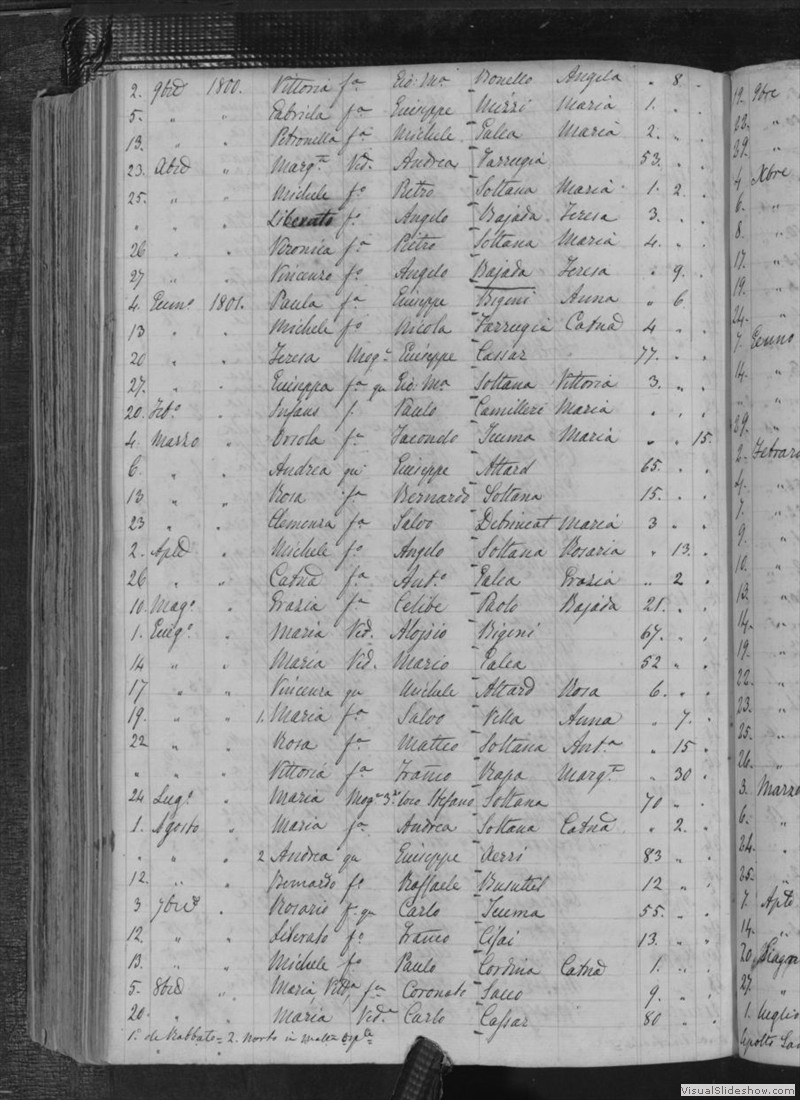 2. 9bre 1800. Vittoria fa Gio: Ma Vonello Angela " 8 .
5. " " Gabriela fa Giuseppe Mizzi Maria 1. . .
13. " " Petronilla fa Michele Galea Maria 2. . .
23. Xbre " Marg.ta Ved. Andrea Farrugia 53. . .
25. " " Michele fo Pietro Soltana Maria 1. 2 .
" " . Liberato fo Angelo Bajada Teresa 3. . .
26 " . Veronica fa Pietro Soltana Maria 4. . .
27 " . Vincenzo fo Angelo Bajada Teresa " 9. .
4. Genno 1801. Paula fa Giuseppe Bigeni Anna " 6
13 " . Michele fo Nicola Farrugia Catna 4 . .
20 " . Teresa Moge Giuseppe Cassar 77. . .
27. " . Giuseppa fa qu Gio: Ma Soltana Vittoria 3. " .
20. Febo " Infans f. Paulo Camilleri Maria . , .
4. Marzo " Orsola fa Facondo Tuma Maria " " 15.
6. " . Andrea qu Giuseppe Attard 65. . .
13 " " Rosa fa Bernardo Soltana 15. . .
23 " . Clemenza fa Salvo Debrincat Maria 3 . .
2. Aple " Michele fo Angelo Soltana Rosaria " 13. .
26 " " Catna fa Anto Galea Grazia " 2 .
10. Mago . Grazia fa Celibe Paolo Bajada 21. . .
1. Giugo . Maria Ved. Alojsio Bigeni 67. . .
14 " " Maria Ved. Mario Galea 52 " .
17 " " Vincenza qu Michele Attard Rosa 6. . .
19. " " 1. Maria fa Salvo Vella Anna " 7. .
22 " . Rosa fa Matteo Soltana Anta " 15 .
" " . Vittoria fa Franco Rapa Margta " 30 .
24 Lugo . Maria Moge 3o loco Stefano Soltana 70 " .
1. Agosto " Maria fa Andrea Soltana Catna " 2. .
" " . 2 Andrea qu Giuseppe Xerri 83 " .
12. " . Bernardo fo Raffaele Busuttil 12 " .
3 7bre . Rosario f. qu Carlo Tuma 55. . .
12. " . Liberato fo Franco Cefai 13. . .
13. " . Michele fo Paulo Cordina Catna 1. " .
5. 8bre " Maria, fa Coronato Sacco 9. . .
20. " . Maria Veda Carlo Cassar 80 . .
1o de Rabbato = 2. Morto in Malta
19. 9bre
23. "
29. "
4 Xbre
6. "
8. "
17. "
19. "
24. "
7. Genno
14. "
" "
29. "
2. Febraro
4. "
7. "
9. "
10. "
13. "
14. "
19. "
22. "
23. "
25. "
26. "
3. Marzo
6. "
24. "
25. "
7. Aple
14. "
20.
27. "
1. Luglio
VisualSlideshow.com